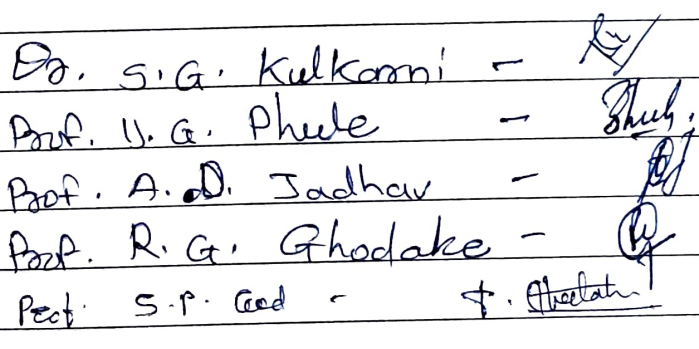 Dr. S.G. Kulkarni -
Prof. V. G. Phule -
Prof. A.D. Jadhav -
Prof. R. G. Ghodake -
Prof. S.P. -